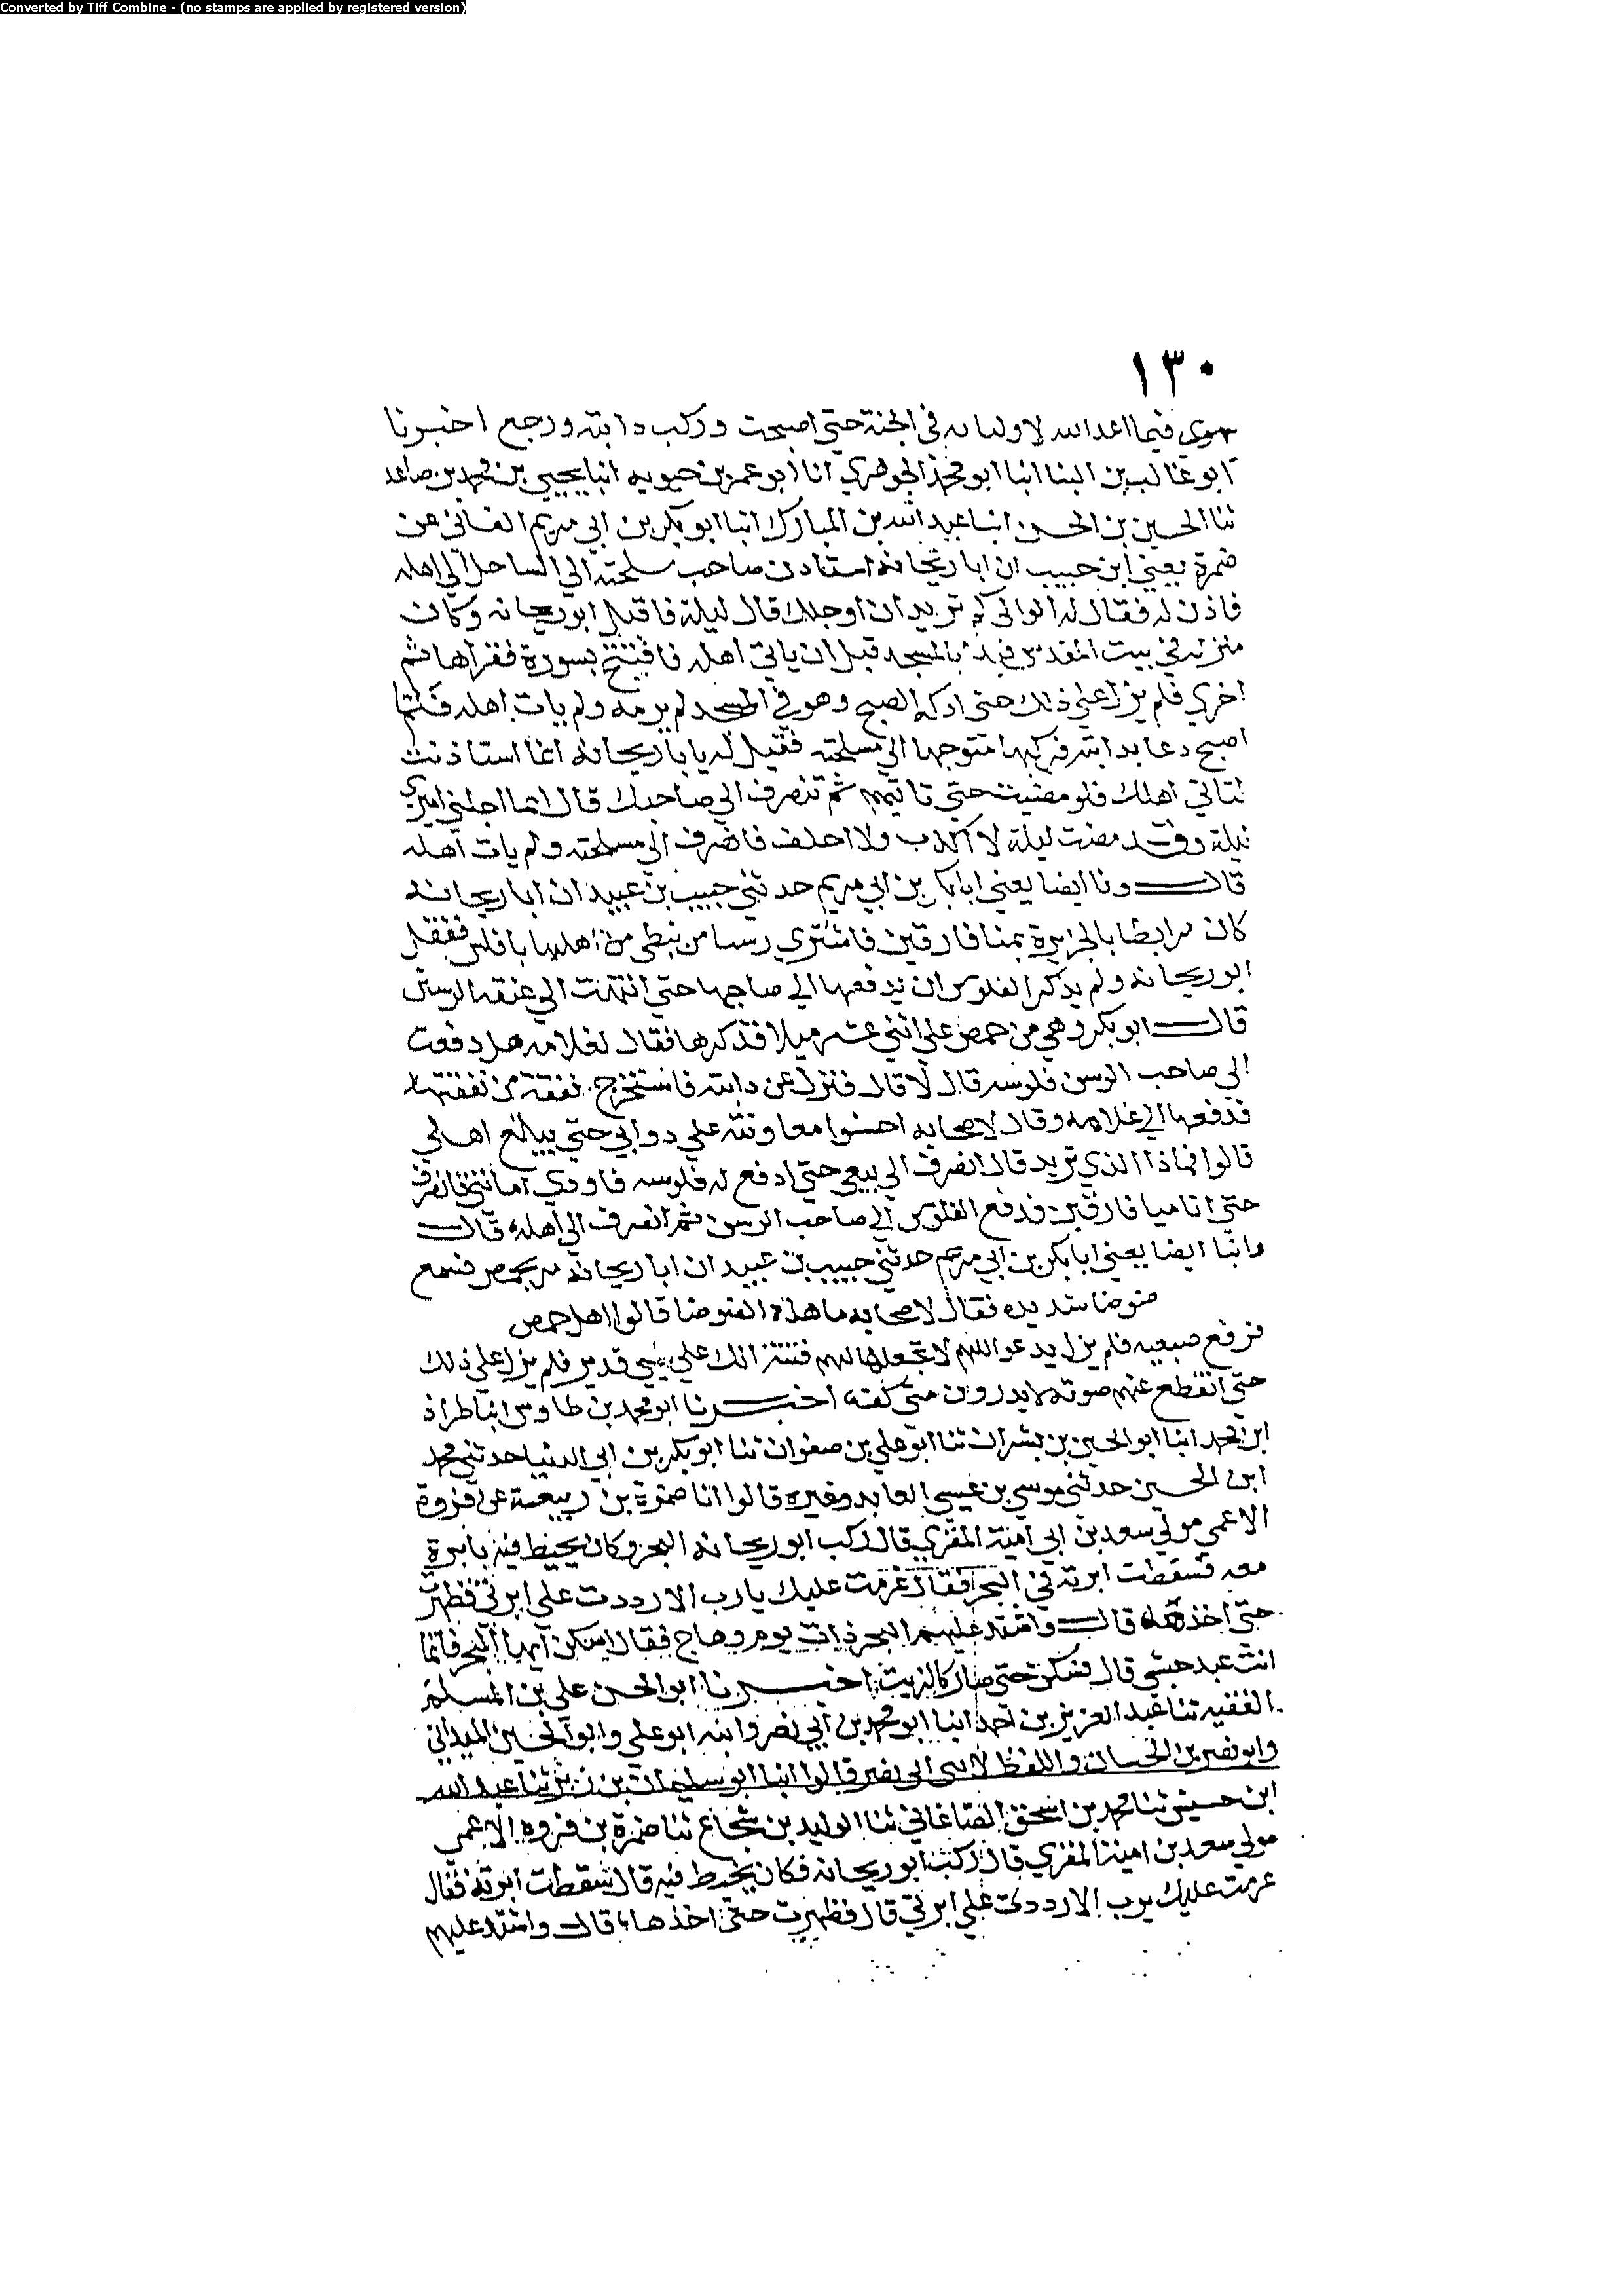 Converted by Tiff Combine - (no stamps are applied by registered version)
١٣٠
يهوي فيما اعد الله لاوليائه في الجنة حتى اصبحت وركب دابته ورجع اخبرنا
ابو غالب بن البنا انبا ابو محمد الجوهري انا ابو عمر بن حيويه انبا يحيى بن محمد بن صاعد
ثنا الحسين بن الحسن انبا عبد الله بن المبارك انبا ابو بكر بن ابي مريم الغساني عن
ضمرة يعني ابن حبيب ان ابا ريحانة استاذن صاحب مسلحته الي الساحل الي اهله
فاذن له فقال له الوالي كم تريد ان اوجلك قال ليلة فاقبل ابو ريحانه وكان
منزله في بيت المقدس فبدا بالمسجد قبل ان ياتي اهله فافتتح بسورة فقراها ثم
اخري فلم يزل علي ذلك حتى ادركه الصبح وهو في المسجد لم يرمه ولم يات اهله فلما
اصبح دعا بدابته فركبها متوجها الي مسلحته فقيل له يا با ريحانه انما استاذنت
لتاتي اهلك فلو مضيت حتى تاتيهم ثم تنصرف الي صاحبك قال انما اجلني اميري
ليلة وقد مضت ليلة لا اكذب ولا اخلف فانصرف الي مسلحته ولم يات اهله
قال ونا ايضا يعني ابا بكر بن ابي مريم حدثني حبيب بن عبيد ان ابا ريحانه
كان مرابطا بالجزيرة بمنافارقين فاشتري رسنا من نبطي من اهلها بافلس فقفل
ابو ريحانه ولم يذكر الفلوس ان يدفعها الي صاحبها حتى انتهت الي عنقه الرستن
قال ابو بكر وهي من حمص علي اثني عشر ميلا فذكرها فقال لغلامه هل دفعت
الي صاحب الرسن فلوسه قال لا قال فنزل عن دابته فاستخرج نفقة من نفقته
فدفعها الي غلامه وقال لاصحابه احسنوا معاونته علي دوابي حتى يبلغ اهلي
قالوا فماذا الذي تريد قال انصرف الي بيعي حتى ادفع له فلوسه فاودي امانتي فانصرف
حتى اتا ميافارقين فدفع الفلوس الي صاحب الرسن ثم انصرف الي اهله قال
وانبا ايضا يعني ابا بكر بن ابي مريم حدثني حبيب بن عبيد ان ابا ريحانه مر بحمص فسمع
ضوضا شديده فقال لاصحابه ما هذه الضوضا قالوا اهل حمص
فرفع ضبعيه فلم يزل يدعو اللهم لا تجعلها لهم فتنة انك علي شي قدير فلم يزل علي ذلك
حتى انقطع عنهم صوته لا يدرون متى كف اخبرنا ابو محمد بن طاوس انبا طراد
ابن محمد انبا ابو الحسين بن بشران ثنا ابو علي بن صفوان ثنا ابو بكر بن ابي الدنيا حدثني محمد
ابن الحسين حدثني موسي بن عيسي العابد وغيره قالوا انا ضمرة بن ربيعة عن فروة
الاعمي مولي سعد بن ابي امية المقري قال ركب ابو ريحانه البحر وكان يخيط فيه بابرة
معه فسقطت ابرته في البحر فقال عزمت عليك يارب الا رددت علي ابرتي فظهرت
حتى اخذها قال واشتد عليهم البحر ذات يوم وهاج فقال اسكن ايها البحر فانما
انت عبد حبشي قال فسكن حتى صار كالزيت اخبرنا ابو الحسن علي بن المسلم
الفقيه ثنا عبد العزيز بن احمد انبا ابو محمد بن ابي نصر وابنه ابو علي وابو الحسين الميداني
وابو نصر بن الحسان واللفظ لابن ابي نصر قالوا انبا ابو سليمان بن زبر ثنا عبد الله
ابن حسين ثنا محمد بن اسحق الصاغاني ثنا الوليد بن شجاع ثنا ضمرة بن فروه الاعمي
مولي سعد بن امية المقري قال ركب ابو ريحانه فكان يخيط فيه قال سقطت ابرته فقال
عزمت عليك يرب الا رددت علي ابرتي قال فظهرت حتى اخذها قال واشتد عليهم